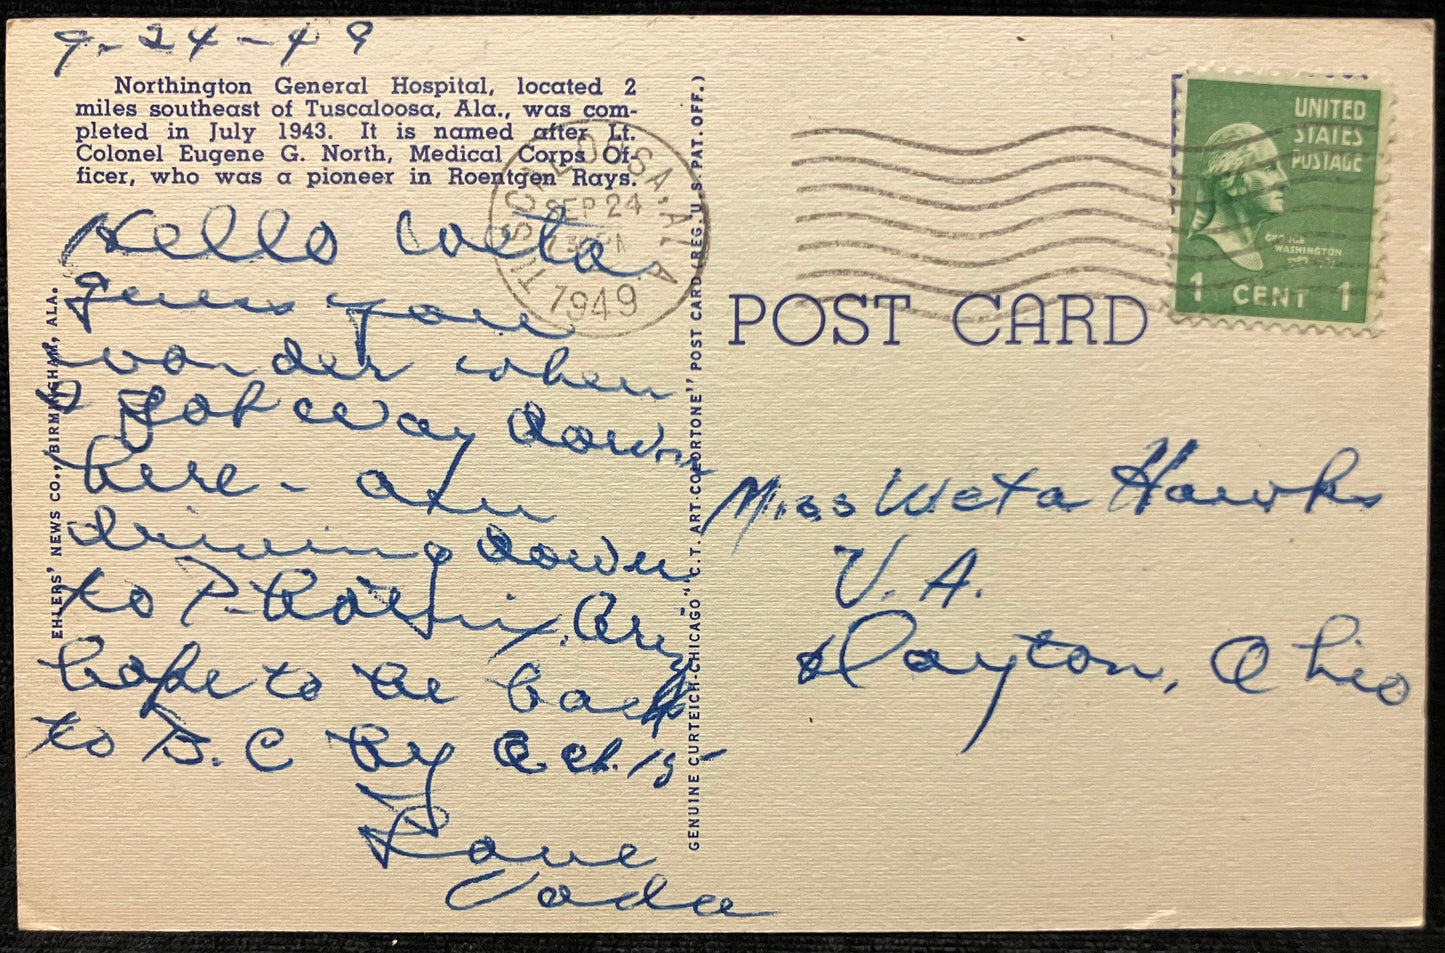 9-24-49
Northington General Hospital, located 2
miles southeast of Tuscaloosa, Ala., was com-
pleted in July 1943. It is named after Lt.
Colonel Eugene G. North, Medical Corps Of-
ficer, who was a pioneer in Roentgen Rays.
Hello Weta
Guess you
wonder when
I got way down
here - am
driving down
to Phoenix, Ariz
hope to be back
to B.C by Oct. 15
Love
Voda
EHLERS' NEWS CO., BIRMINGHAM, ALA.
GENUINE CURTEICH-CHICAGO "C.T. ART-COLORTONE" POST CARD (REG. U.S. PAT. OFF.)
TUSCALOOSA, ALA
SEP 24
1949
POST CARD
UNITED
STATES
POSTAGE
GEORGE
WASHINGTON
1 CENT 1
Miss Weta Hawks
V.A.
Dayton, Ohio